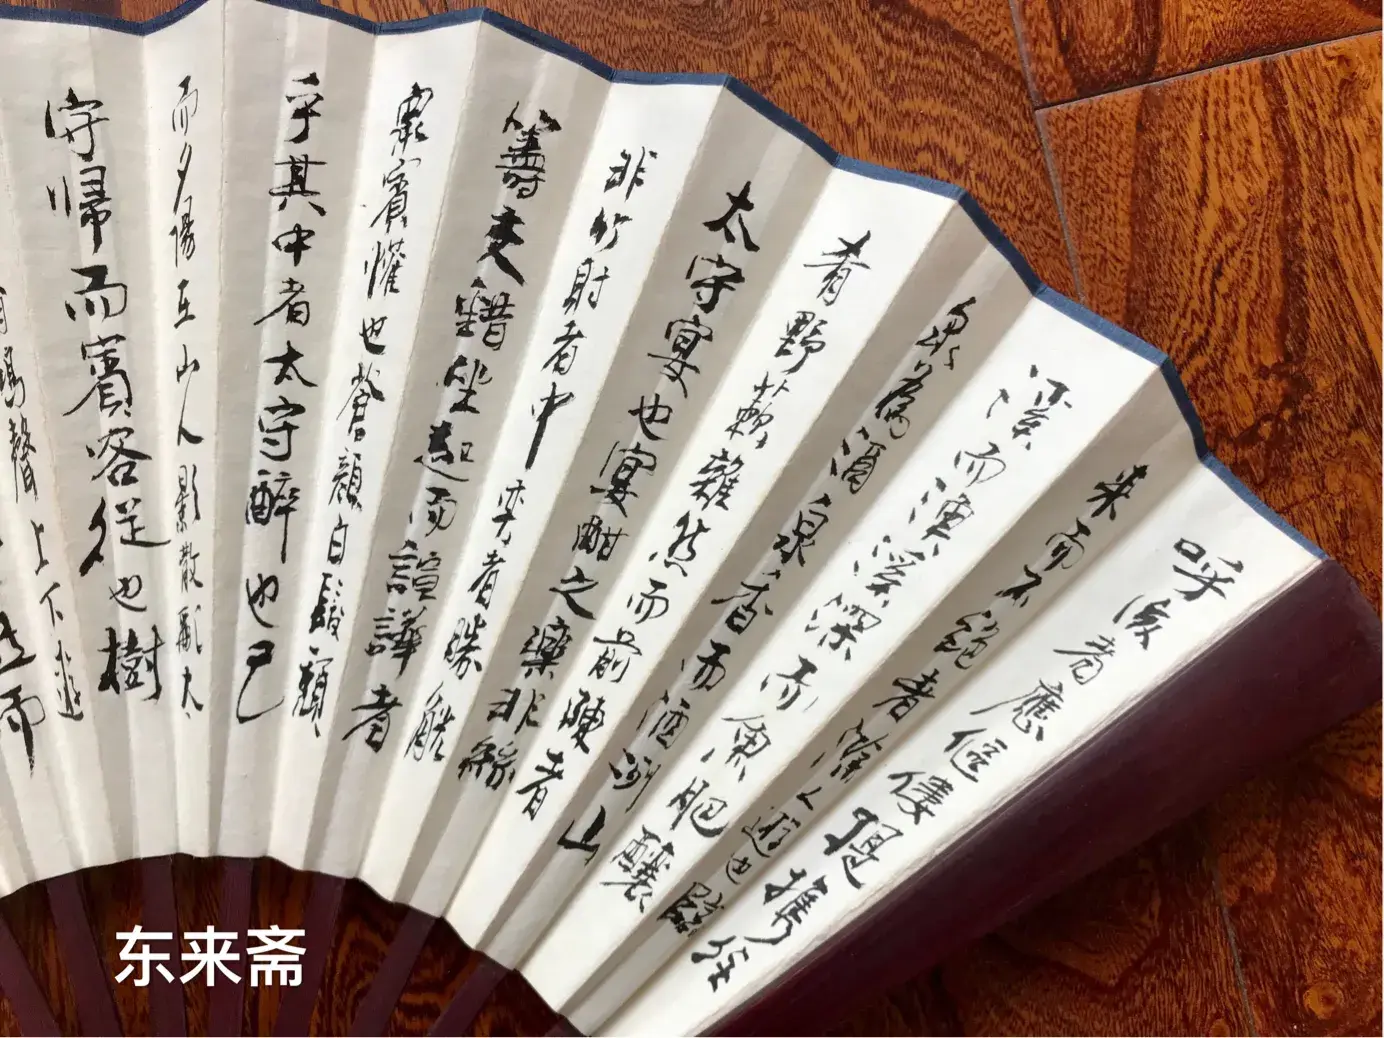 呼後者應傴僂提携往
来而不絕者滁人遊也臨
溪而漁溪深而魚肥釀
泉為酒泉香而酒洌山
肴野蔌雜然而前陳者
太守宴也宴酣之樂非絲
非竹射者中奕者勝觥
籌交錯坐起而諠譁者
衆賓懽也蒼顏白髮頹
乎其中者太守醉也已
而夕陽在山人影散亂太
守歸而賓客從也樹
鳴聲上下遊
而
东来斋